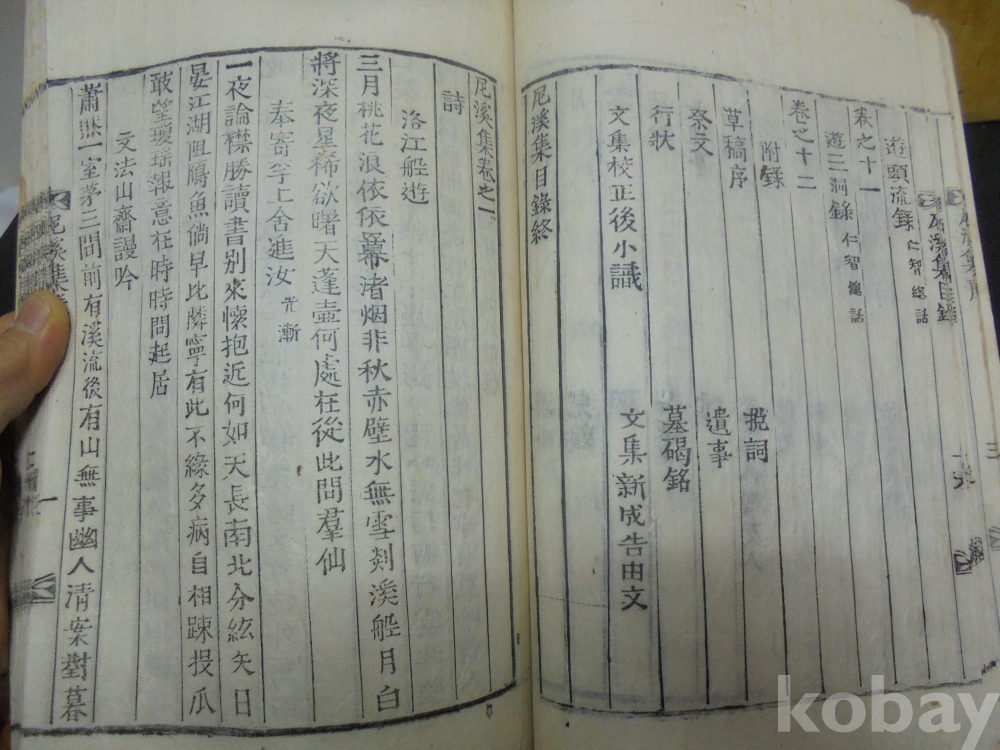 遊頭流錄 仁智總話
卷之十一
遊三洞錄 仁智總話
卷之十二
附錄
草稿序 挽詞
祭文 遺事
行狀 墓碣銘
文集校正後小識 文集新成告由文
尼溪集目錄終
尼溪集卷之一
詩
洛江船遊
三月桃花浪依依幕渚烟非秋赤壁水無雪剡溪船月白
將深夜星稀欲曙天蓬壺何處在從此問羣仙
奉寄李上舍進汝 光漸
一夜論襟勝讀書別來懷抱近何如天長南北分絃矢日
晏江湖阻鴈魚倘早比憐寧有此不緣多病自相踈投瓜
敢望瓊瑶報意在時時問起居
文法山齋謾吟
蕭然一室茅三間前有溪流後有山無事幽人清案對暮
尼溪集
kobay